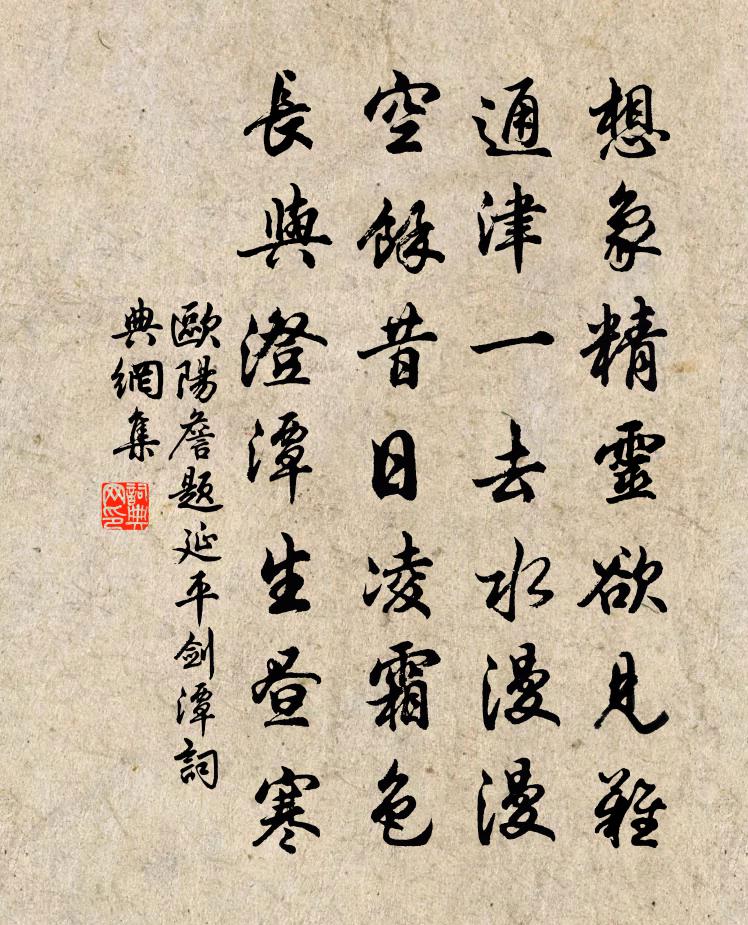 想象精靈欲見難
通津一去水漫漫
空餘昔日凌霜色
長與澄潭生晝寒
歐陽詹題延平劍潭詞
典網集
詞典
网印